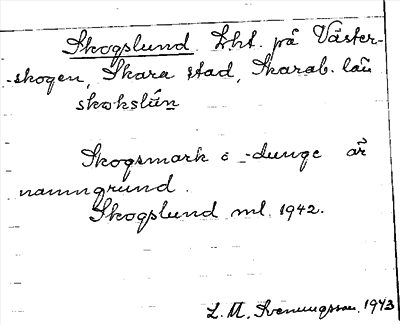 Skogslund. Lht. på Väster-
-skogen, Skara stad, Skarab. län
skokslún
Skogsmark o -dunge är
namngrund.
Skogslund ml. 1942.
L. M. Svenungsson. 1943